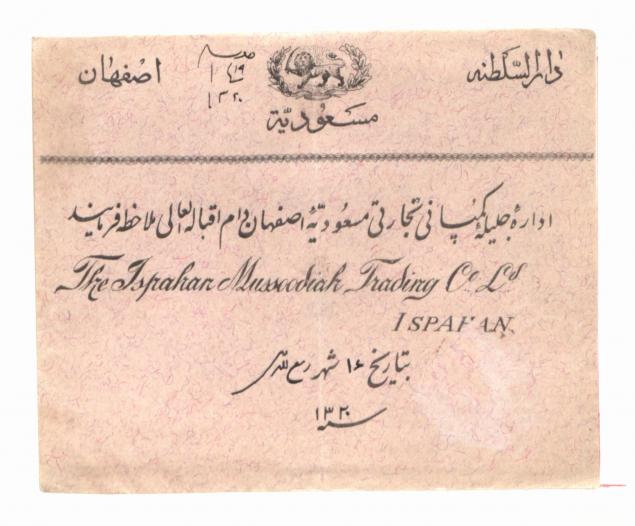 دارالسلطنه اصفهان
مسعودیّه
۱۹
۱۳۲۰
اداره جلیلهٔ کمپانی تجارتی مسعودیّهٔ اصفهان دام اقباله العالی ملاحظه فرمایند
The Ispahan Mussoodiah Trading Co. Ld
ISPAHAN.
بتاریخ ۱۶ شهر ربیع
سنه ۱۳۲۰